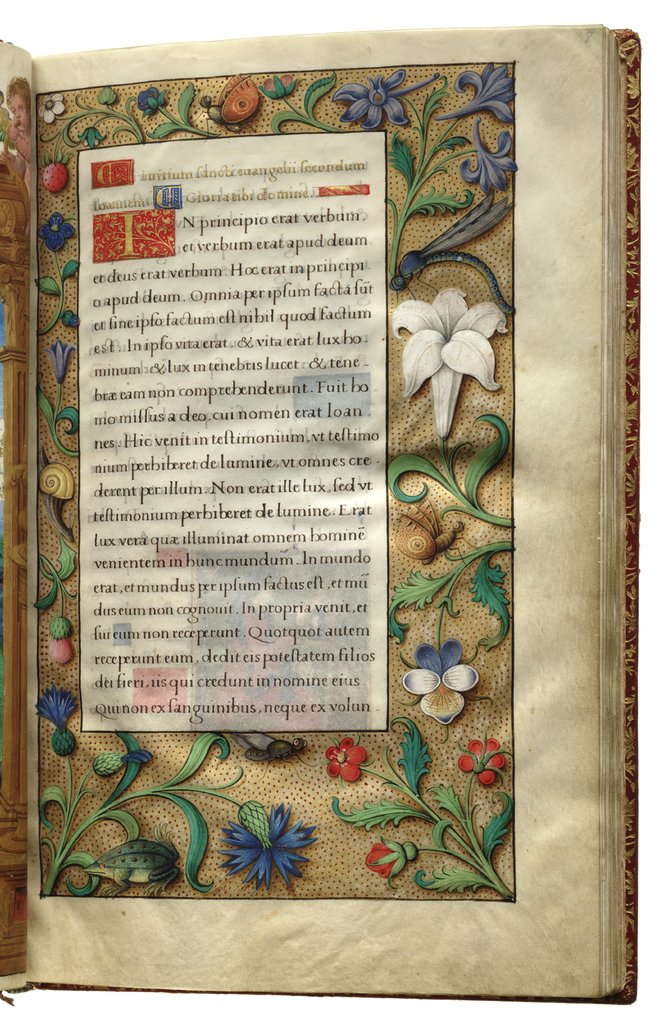 Initium sancti euangelii secundum
Ioannem. Gloria tibi domine.
IN principio erat verbum,
et verbum erat apud deum
et deus erat verbum. Hoc erat in principi
o apud deum. Omnia per ipsum facta sūt
et sine ipso factum est nihil quod factum
est. In ipso vita erat, & vita erat lux ho
minum: & lux in tenebris lucet: & tene-
bræ eam non comprehenderunt. Fuit ho
mo missus a deo, cui nomen erat Ioan
nes. Hic venit in testimonium, vt testimo
nium perhiberet de lumine, vt omnes cre
derent per illum. Non erat ille lux, sed vt
testimonium perhiberet de lumine. Erat
lux vera quæ illuminat omnem hominē
venientem in hunc mundum. In mundo
erat, et mundus per ipsum factus est, et mū
dus eum non cognouit. In propria venit, et
sui eum non receperunt. Quotquot autem
receperunt eum, dedit eis potestatem filios
dei fieri, iis qui credunt in nomine eius
Qui non ex sanguinibus, neque ex volun-